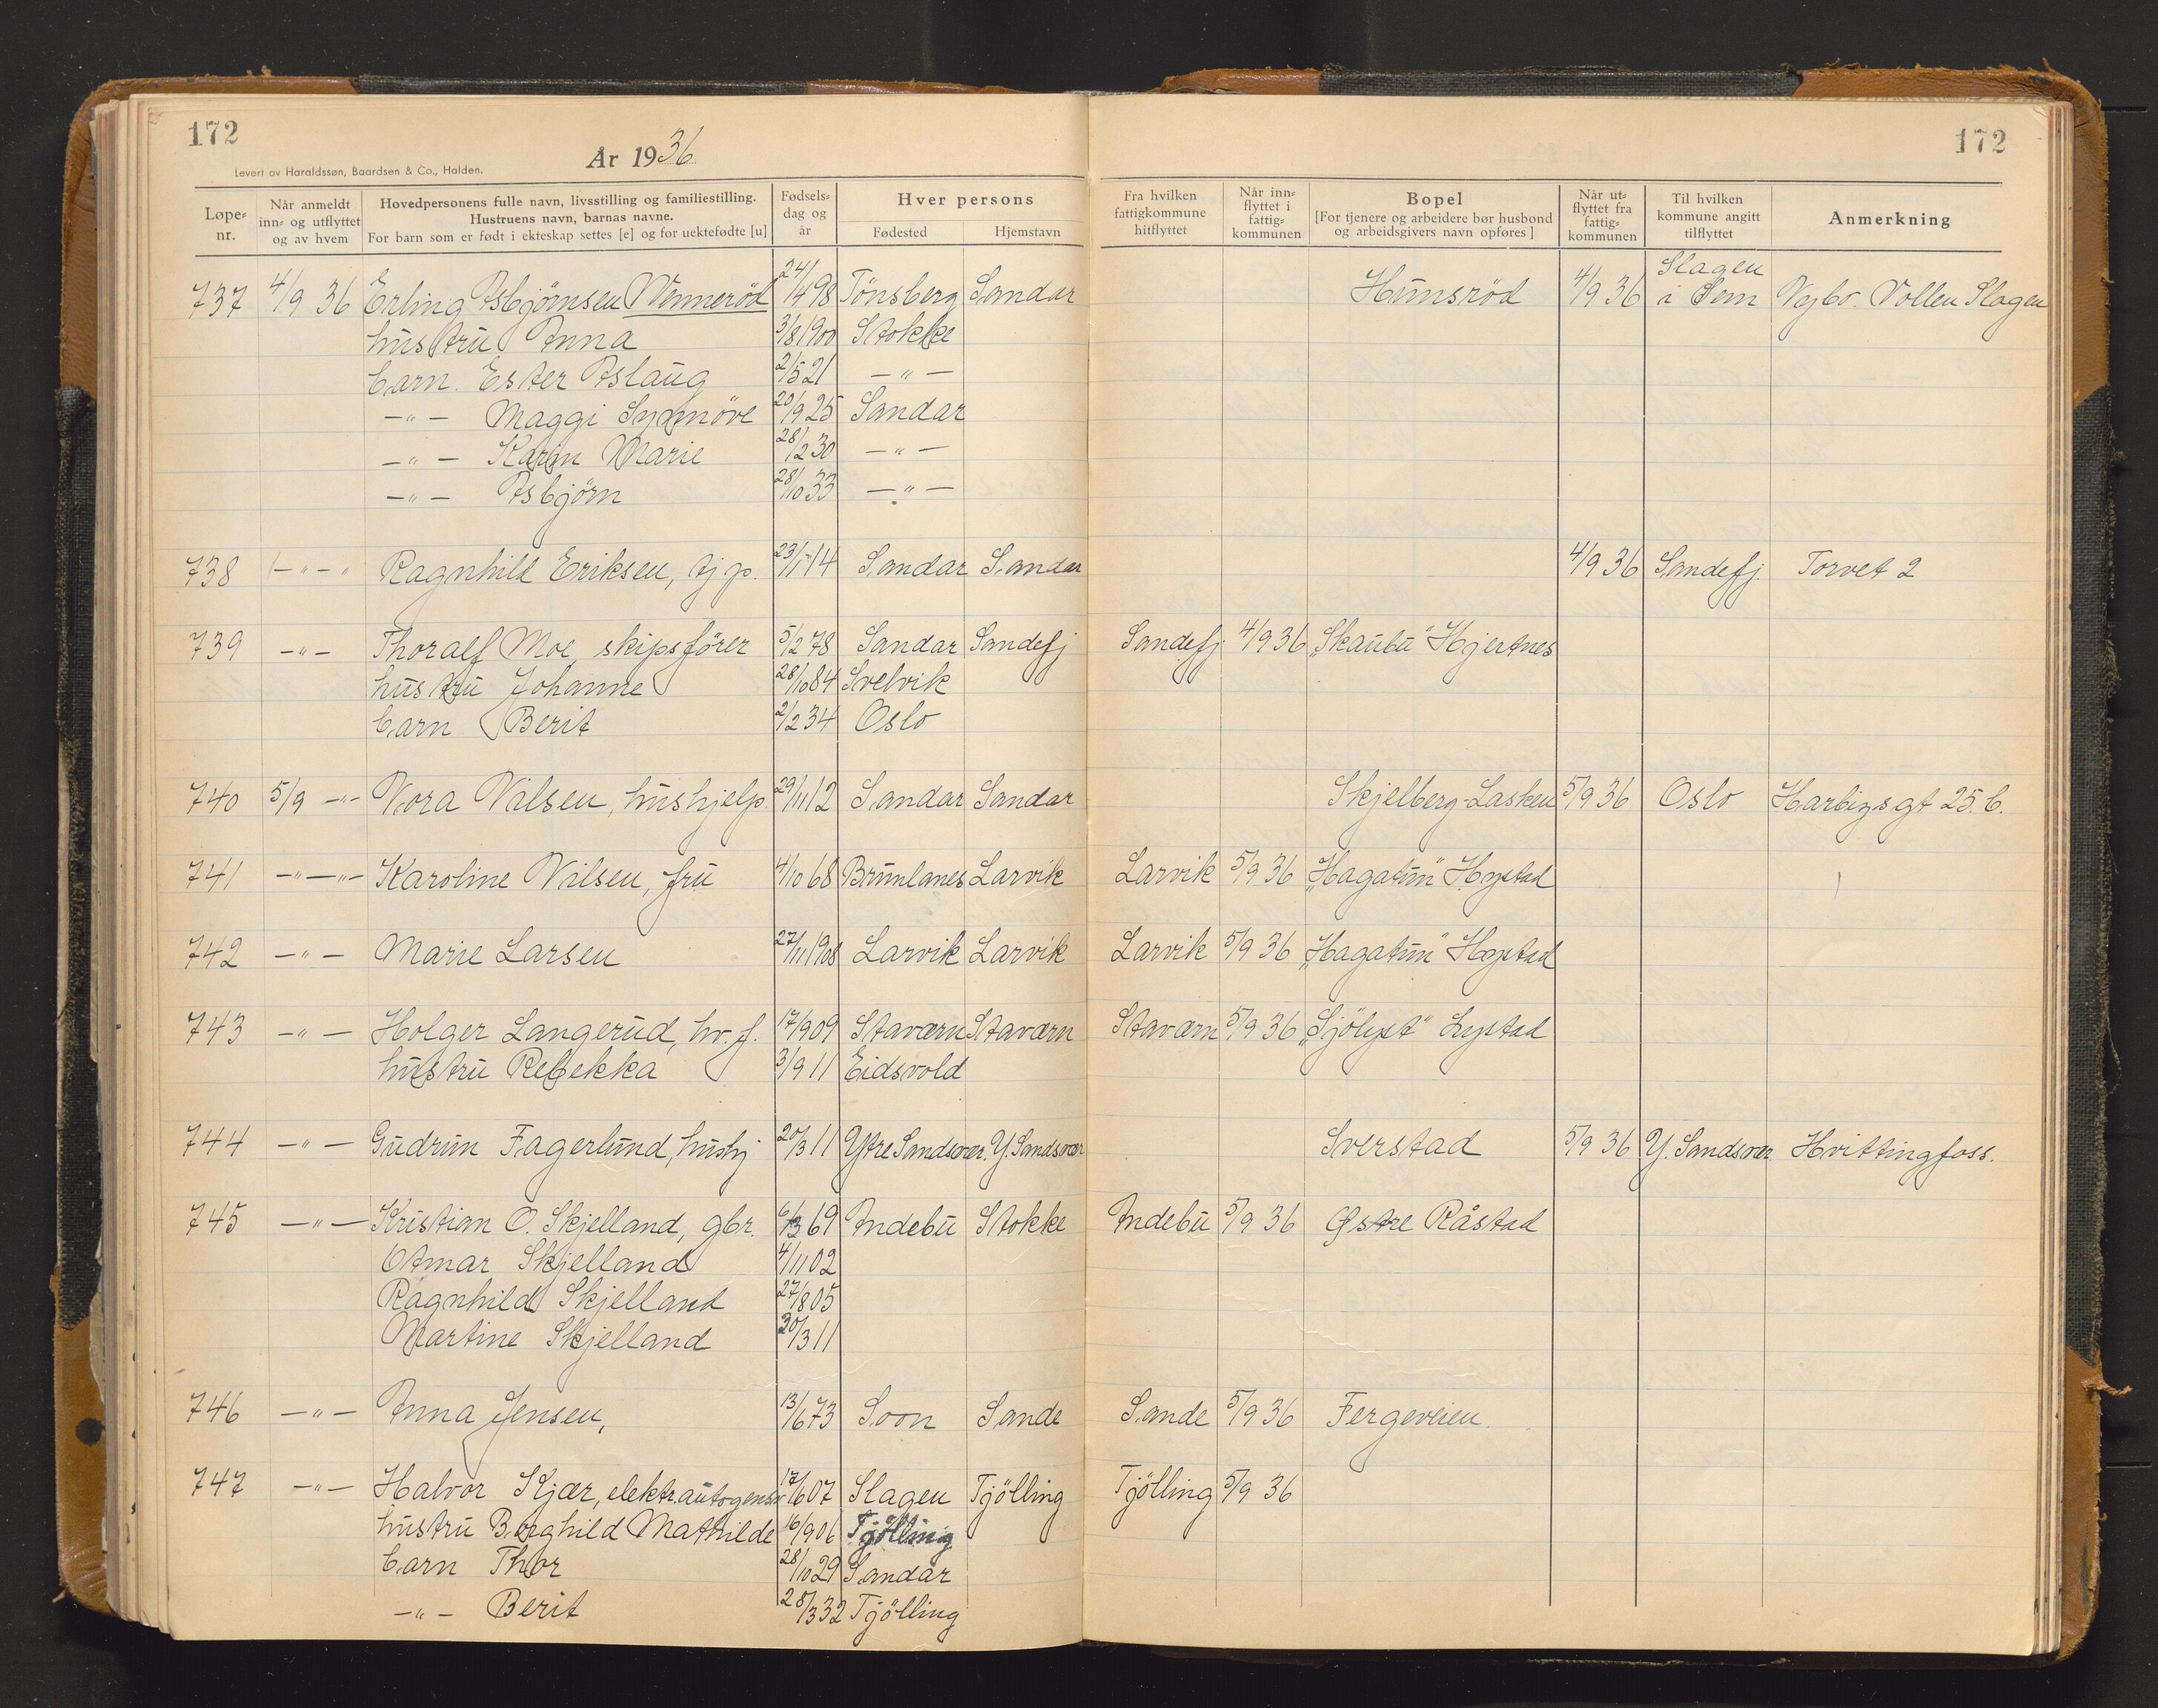 172
172
År 1936
Levert av Haraldssøn, Baardsen & Co., Halden.
Løpe-nr. Når anmeldt inn- og utflyttet og av hvem Hovedpersonens fulle navn, livsstilling og familiestilling. Hustruens navn, barnas navne. For barn som er født i ekteskap settes [e] og for uektefødte [u] Fødselsdag og år Hver persons Fødested Hjemstavn Fra hvilken fattigkommune hitflyttet Når innflyttet i fattigkommunen Bopel [For tjenere og arbeidere bør husbond og arbeidsgivers navn opføres] Når utflyttet fra fattigkommunen Til hvilken kommune angitt tilflyttet Anmerkning
737 4/9 36 Erling Asbjørnsen Vennerød 24/4 98 Tönsberg Sandar Hunsröd 4/9 36 Slagen i Sem Nybo. Vollen Slagen
hustru Anna 3/8 1900 Stokke
barn. Ester Aslaug 2/5 21 —"—
—"— Maggi Synnöve 20/9 25 Sandar
—"— Karin Marie 28/2 30 —"—
—"— Asbjörn 28/10 33 —"—
738 —"—" Ragnhild Eriksen, tj.p. 23/1 14 Sandar Sandar 4/9 36 Sandefj. Torvet 2
739 —"— Thoralf Moe, skipsförer 5/2 78 Sandar Sandefj Sandefj 4/9 36 „Skaubu" Hjertnes
hustru Johanne 28/10 84 Svelvik
barn Berit 2/2 34 Oslo
740 5/9 —"— Nora Nilsen, hushjelp. 29/11 12 Sandar Sandar Skjelberg-Lasken 5/9 36 Oslo Harbizsgt 25.b.
741 —"—"— Karoline Nilsen, fru 4/10 68 Brunlanes Larvik Larvik 5/9 36 „Hagatun" Hystad
742 —"— Marie Larsen 27/11 1908 Larvik Larvik Larvik 5/9 36 „Hagatun" Hystad
743 —"— Holger Langerud, hv.f. 17/9 09 Staværn Staværn Staværn 5/9 36 „Sjölyst" Lystad
hustru Rebekka 3/9 11 Eidsvold
744 —"— Gudrun Fagerlund, hushj 20/3 11 Ytre Sandsvær. Y. Sandsvær Sverstad 5/9 36 Y. Sandsvær Hvittingfoss.
745 —"— Kristian O. Skjelland, gbr. 6/3 69 Andebu Stokke Andebu 5/9 36 Østre Råstad
Otmar Skjelland 4/11 02
Ragnhild Skjelland 27/8 05
Martine Skjelland 30/3 11
746 —"— Anna Jensen, 13/6 73 Soon Sande Sande 5/9 36 Fergeveien.
747 —"— Halvor Kjær, elektr.autogensv 17/6 07 Slagen Tjölling Tjölling 5/9 36
hustru Borghild Mathilde 16/9 06 Tjölling
barn Thor 28/10 29 Sandar
—"— Berit 28/3 32 Tjölling